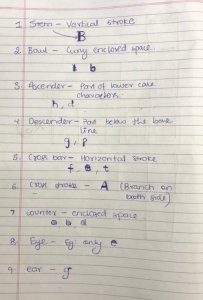 1. Stem - Vertical stroke
B
2. Bowl - Curvy enclosed space.
b
3. Ascender - Part of lower case
characters.
h, d
4. Descender - Part below the base
line
g, p
5. Cross bar - Horizontal stroke
f, e, t
6. Cross stroke - A (Branch on
both side)
7 counter - enclosed space
o b d
8. Eye - Eg: only e
9. ear - g